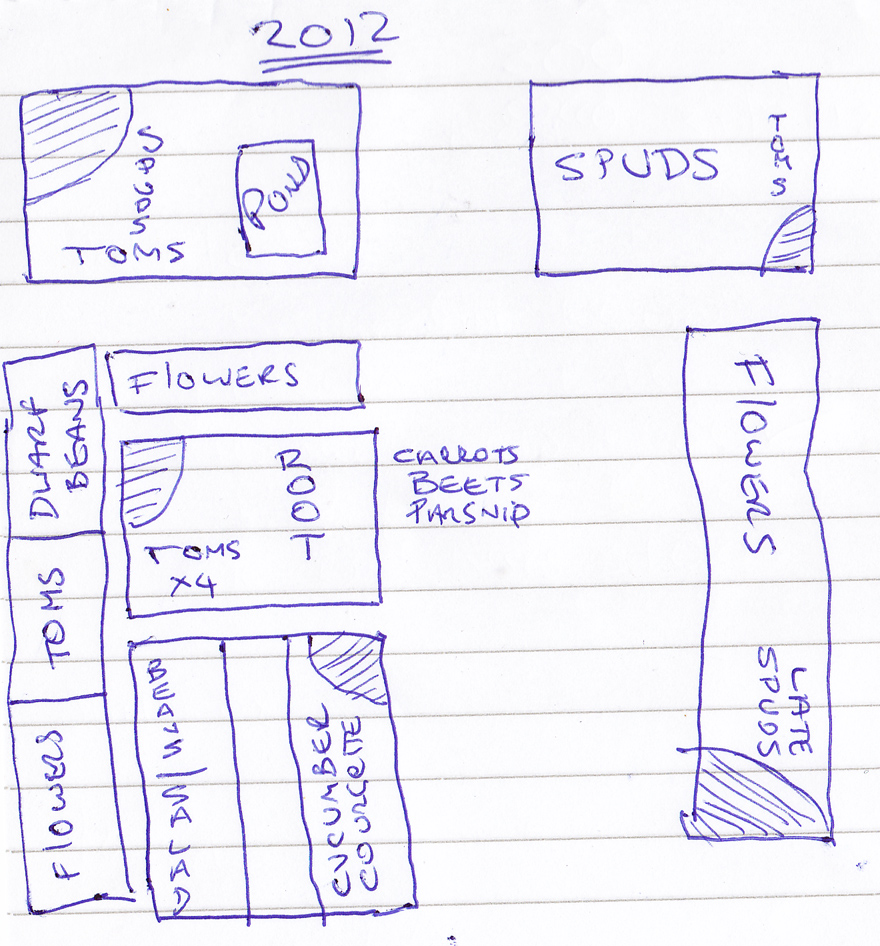 2012
TOMS
POND
SPUDS
TOMS
DWARF
BEANS
TOMS
FlOWERS
FlOWERS
ROOT
TOMS
X4
CARROTS
BEETS
PARSNIP
BEANS/SALAD
CUCUMBER
COURGETTE
FlOWERS
LATE
SPUDS